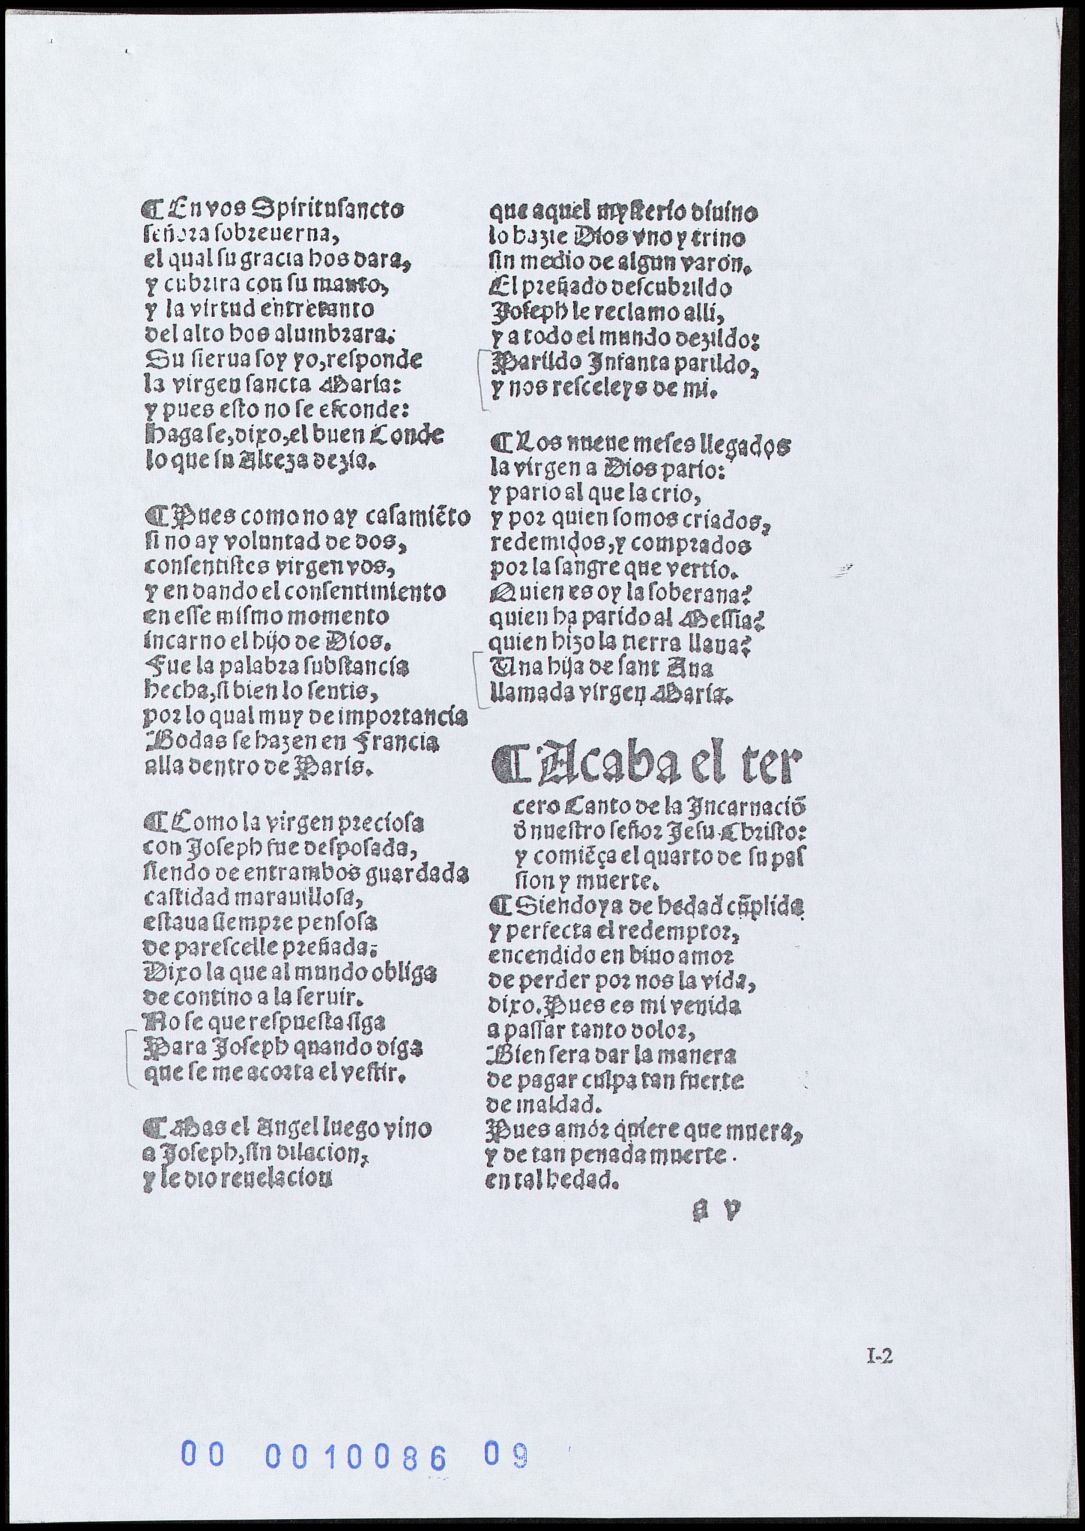 ¶ En vos Spiritusancto
señora sobreuerna,
el qual su gracia hos dara,
y cubrira con su manto,
y la virtud entretanto
del alto hos alumbrara:
Su sierua soy yo, responde
la virgen sancta Maria:
y pues esto no se esconde:
haga se, dixo, el buen Conde
lo que su Alteza dezia.
¶ Pues como no ay casamiẽto
si no ay voluntad de dos,
consentistes virgen vos,
y en dando el consentimiento
en esse mismo momento
incarno el hijo de Dios.
Fue la palabra substancia
hecha, si bien lo sentis,
por lo qual muy de importancia
Bodas se hazen en Francia
alla dentro de Paris.
¶ Como la virgen preciosa
con Joseph fue desposada,
siendo de entrambos guardada
castidad marauillosa,
estaua siempre pensosa
de parescelle preñada:
Dixo la que al mundo obliga
de contino a la seruir.
No se que respuesta siga
Para Joseph quando diga
que se me acorta el vestir.
¶ Mas el Angel luego vino
a Joseph, sin dilacion,
y le dio reuelacion
que aquel mysterio diuino
lo hazie Dios vno y trino
sin medio de algun varon.
El preñado descubrildo
Joseph le reclamo alli,
y a todo el mundo dezildo:
Parildo Infanta parildo,
y nos resceleys de mi.
¶ Los nueue meses llegados
la virgen a Dios pario:
y pario al que la crio,
y por quien somos criados,
redemidos, y comprados
por la sangre que vertio.
Quien es oy la soberana?
quien ha parido al Messia?
quien hizo la tierra llana?
Una hija de sant Ana
llamada virgen Maria.
¶ Acaba el ter
cero Canto de la Incarnaciõ
đ nuestro señor Jesu Christo:
y comiẽça el quarto de su pas
sion y muerte.
¶ Siendo ya de hedad cũplida
y perfecta el redemptor,
encendido en biuo amor
de perder por nos la vida,
dixo. Pues es mi venida
a passar tanto dolor,
Bien sera dar la manera
de pagar culpa tan fuerte
de maldad.
Pues amor quiere que muera,
y de tan penada muerte.
en tal hedad.
a v
I-2
00 0010086 09